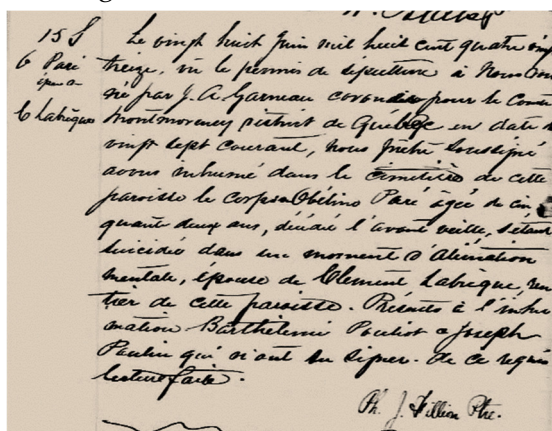 15 S
Paré
épouse
C Labrèque
Le vingt huit Juin mil huit cent quatre vingt
treize, vu le permis de sépulture à Nous don
né par J. A. Garneau coroner pour le Comté
Montmorency district de Québec en date d
vingt sept courant, nous prêtre soussigné
avons inhumé dans le cimetière de cette
paroisse le corps Obéline Paré âgée de cin
quante deux ans, décédé l'avant veille, s'étant
suicidée dans un moment d'aliénation
mentale, épouse de Clement Labrèque, ren
tier de cette paroisse. Présents à l'inhu
mation Barthélemi Pouliot & Joseph
Paulin qui n'ont su signer. de ce requis
lecture faite.
Ph. J. Fillion Ptre.